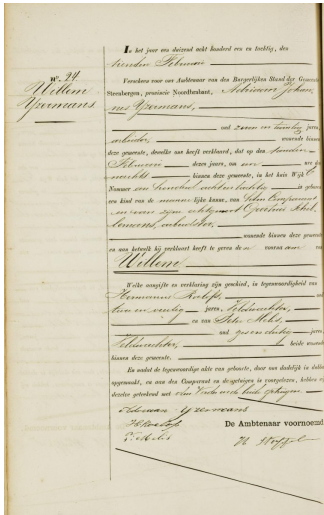 N°. 24
Willem
Yzermans
In het jaar een duizend acht honderd een en tachtig, den
tienden Februari
Verscheen voor ons Ambtenaar van den Burgerlijken Stand der Gemeente
Steenbergen, provincie Noordbrabant, Adriaan Johan
nes Yzermans,
oud zeven en twintig jaren,
arbeider, wonende binnen
deze gemeente, dewelke ons heeft verklaard, dat op den tienden
Februari dezes jaars, ten een ure des
binnen deze gemeente, in het huis Wijk
Nummer een honderd achtentachtig is geboren
een kind van de mannelijke kunne, van hem Comparant
en van zijn echtgenoot
arbeidster,
wonende binnen deze gemeente
en aan hetwelk hij verklaard heeft te geven den voornaam van
Willem
Welke aangifte en verklaring zijn geschied, in tegenwoordigheid van
Hermanus Roelofs, oud
jaren, Veldwachter,
en van Peter Melis,
oud jaren
Veldwachter, beide wonende
binnen deze gemeente.
En omdat de tegenwoordige akte van geboorte, daar van dadelijk is dubbel
opgemaakt, en aan den Comparant en de getuigen is voorgelezen, hebben
dezelve geteekend met ons
Adriaan Yzermans
H Roelofs
P. Melis
De Ambtenaar voornoemd